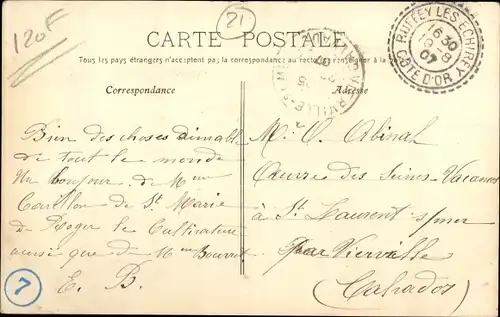 120F
21
CARTE POSTALE
Tous les pays étrangers n'acceptent pas la correspondance au recto (se renseigner à la
Correspondance
Adresse
RUFFEY LES ECHIREY
6 30
19 -8
07
COTE D'OR
Bien des choses aimables
de tout le monde
Un bonjour de Mme
Carillon de St Marie
de Roger le Cultivateur
ainsi que de Mme Bourret
E. B.
7
M. O. Abinal
Œuvre des Seines-Vacances
à St Laurent s/mer
par Vierville
(Calvados)